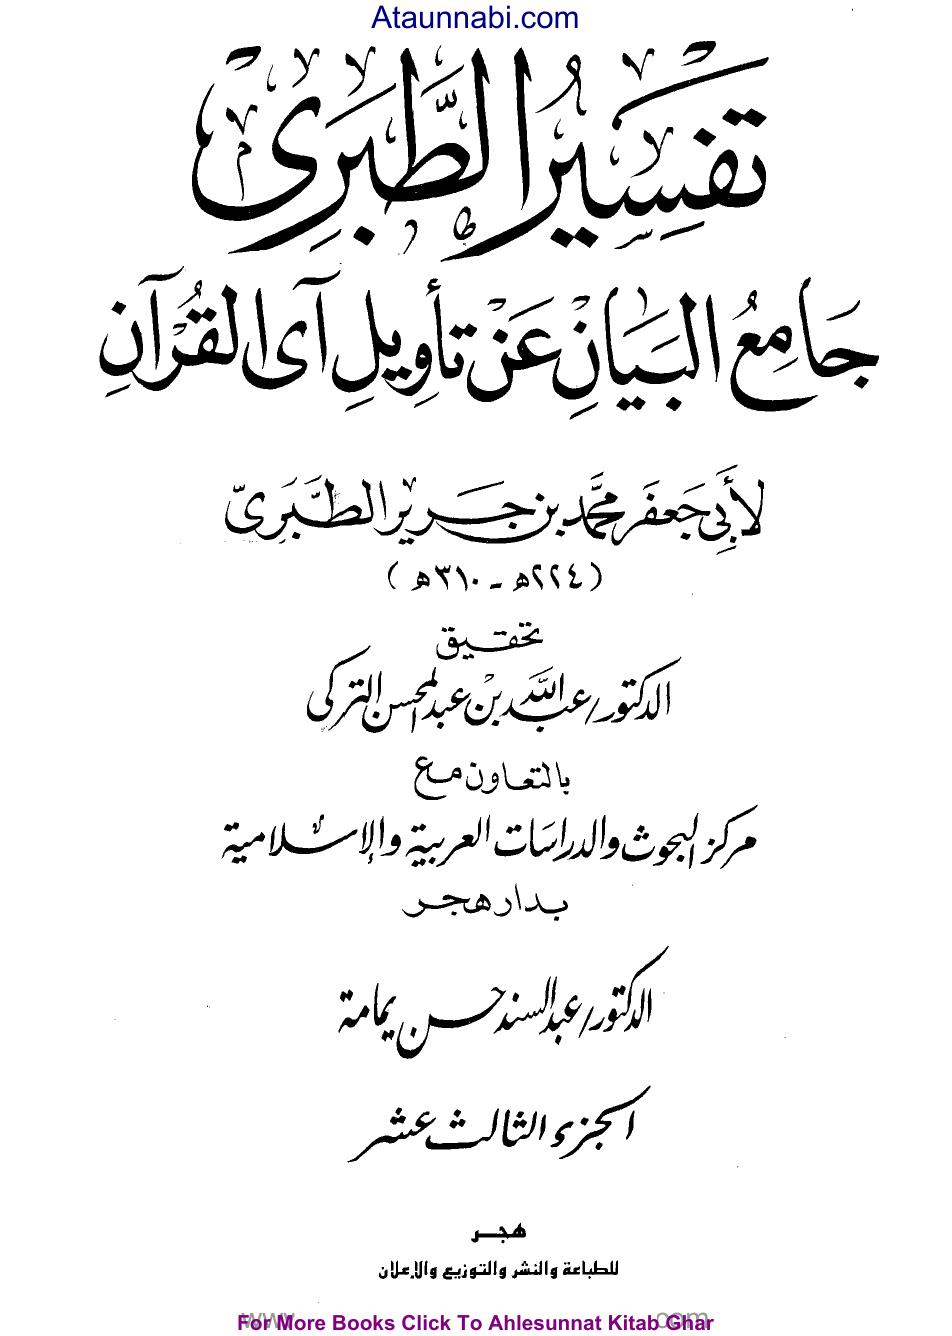 Ataunnabi.com
تَفْسِيرُ الطَّبَرِي
جَامِعُ البَيَانِ عَنْ تَأْوِيلِ آيِ القُرْآنِ
لأَبِي جَعفَر محمَّد بن جَرير الطَّبَرِيّ
(٢٢٤ه - ٣١٠ه)
تحقيق
الدكتور/عبد اللَّه بن عبد المحسن التركي
بالتعاون مع
مركز البحوث والدراسات العربية والإسلامية
بدار هجر
الدكتور/عبد السند حسن يمامة
الجزء الثالث عشر
هجر
للطباعة والنشر والتوزيع والإعلان
For More Books Click To Ahlesunnat Kitab Ghar